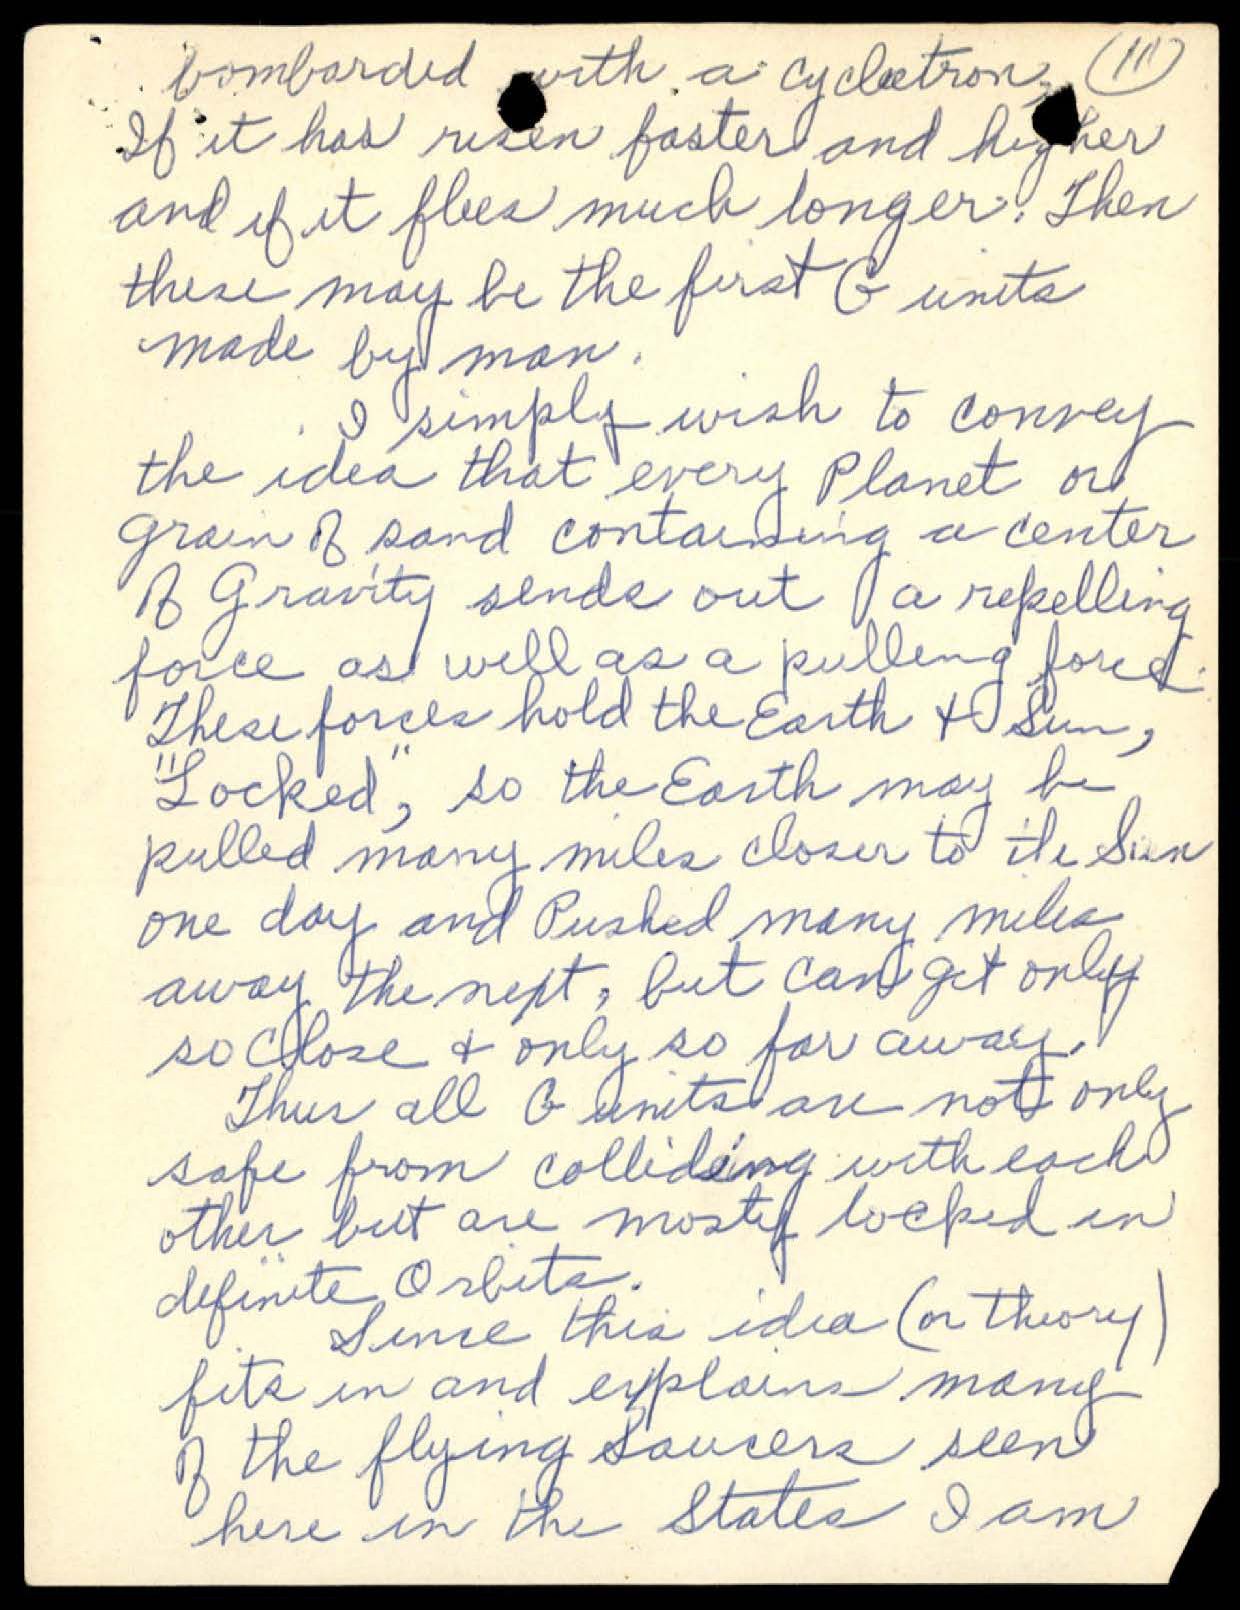 bombarded with a cyclectron, (11)
If it has risen faster and higher
and if it flies much longer. Then
these may be the first G units
made by man.
I simply wish to convey
the idea that every Planet or
grain of sand containing a center
of Gravity sends out a repelling
force as well as a pulling force.
These forces hold the Earth & Sun,
"Locked", so the Earth may be
pulled many miles closer to the Sun
one day and Pushed many miles
away the next, but can get only
so close & only so far away.
Thus all G units are not only
safe from colliding with each
other but are mostly locked in
definite Orbits.
Since this idea (or theory)
fits in and explains many
of the flying Saucers seen
here in the States I am